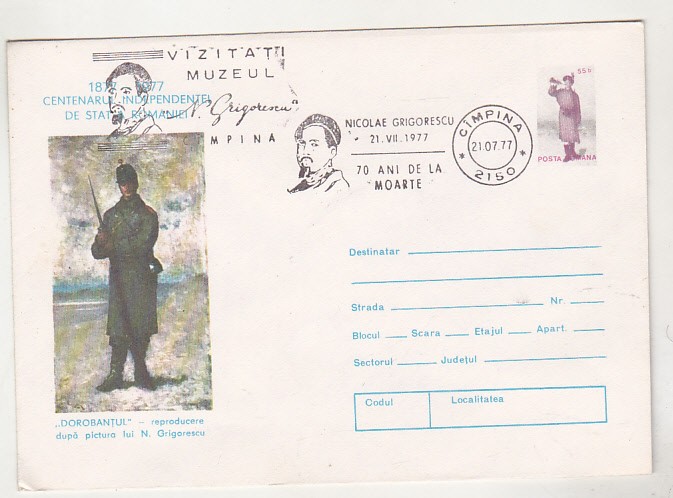 VIZITAȚI
MUZEUL
„N. Grigorescu"
CÎMPINA
1877 1977
CENTENARUL INDEPENDENȚEI
DE STAT A ROMÂNIEI
NICOLAE GRIGORESCU
21.VII.1977
70 ANI DE LA
MOARTE
* CÎMPINA *
21.07.77
2150
55 b
POSTA ROMANA
Destinatar
Strada Nr.
Blocul Scara Etajul Apart.
Sectorul Județul
Codul Localitatea
„DOROBANȚUL" – reproducere
după pictura lui N. Grigorescu